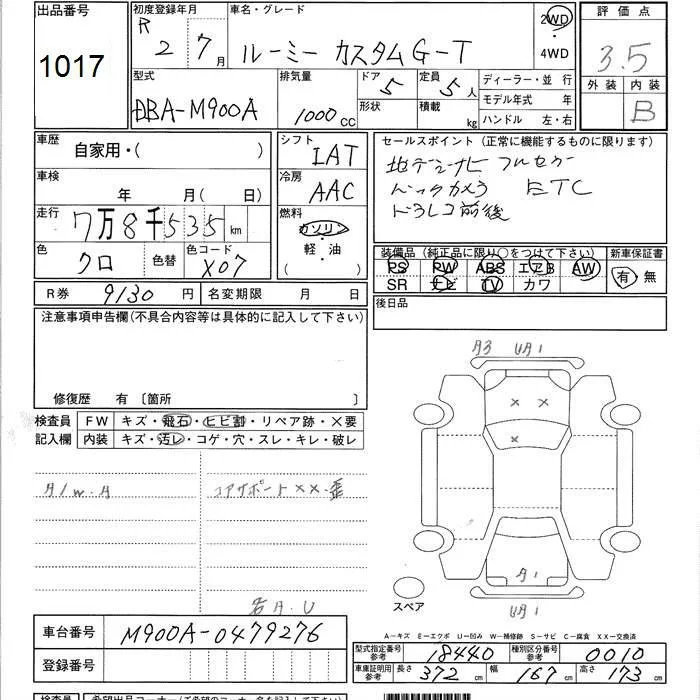 出品番号
1017
初度登録年月
R 2 7月
車名・グレード
ルーミー カスタムG-T
2WD
・
4WD
評価点
3.5
外装 内装
B
型式
DBA-M900A
排気量
1000cc
ドア 5
形状
定員 5人
積載 kg
ディーラー・並行
モデル年式 年
ハンドル 左・右
車歴
自家用・( )
シフト
IAT
セールスポイント(正常に機能するものに限ります)
地デジナビ フルセグ
バックカメラ ETC
ドラレコ前後
車検
年 月( 日)
冷房
AAC
走行
7万8千535km
燃料
ガソリン
・
軽・油
( )
色
クロ
色替
色コード
X07
装備品(純正品に限り○をつけて下さい)
新車保証書
PS PW ABS エアB AW
SR ナビ TV カワ
有・無
R券 9130円
名変期限 月 日
後日品
注意事項申告欄(不具合内容等は具体的に記入して下さい)
修復歴 有〔箇所 〕
検査員
記入欄
FW キズ・飛石・ヒビ割・リペア跡・×要
内装 キズ・汚レ・コゲ・穴・スレ・キレ・破レ
A3 UA1
× ×
×
A/W.A
コアサポートXX.歪
A1
UA1
スペア
A.U
A-キズ E-エクボ U-凹み W-補修跡 S-サビ C-腐食 XX-交換済
車台番号
M900A-0479276
登録番号
型式指定番号
参考
18440
種別区分番号
参考
0010
車庫証明用
参考
長さ 372cm
幅 167cm
高さ 173cm